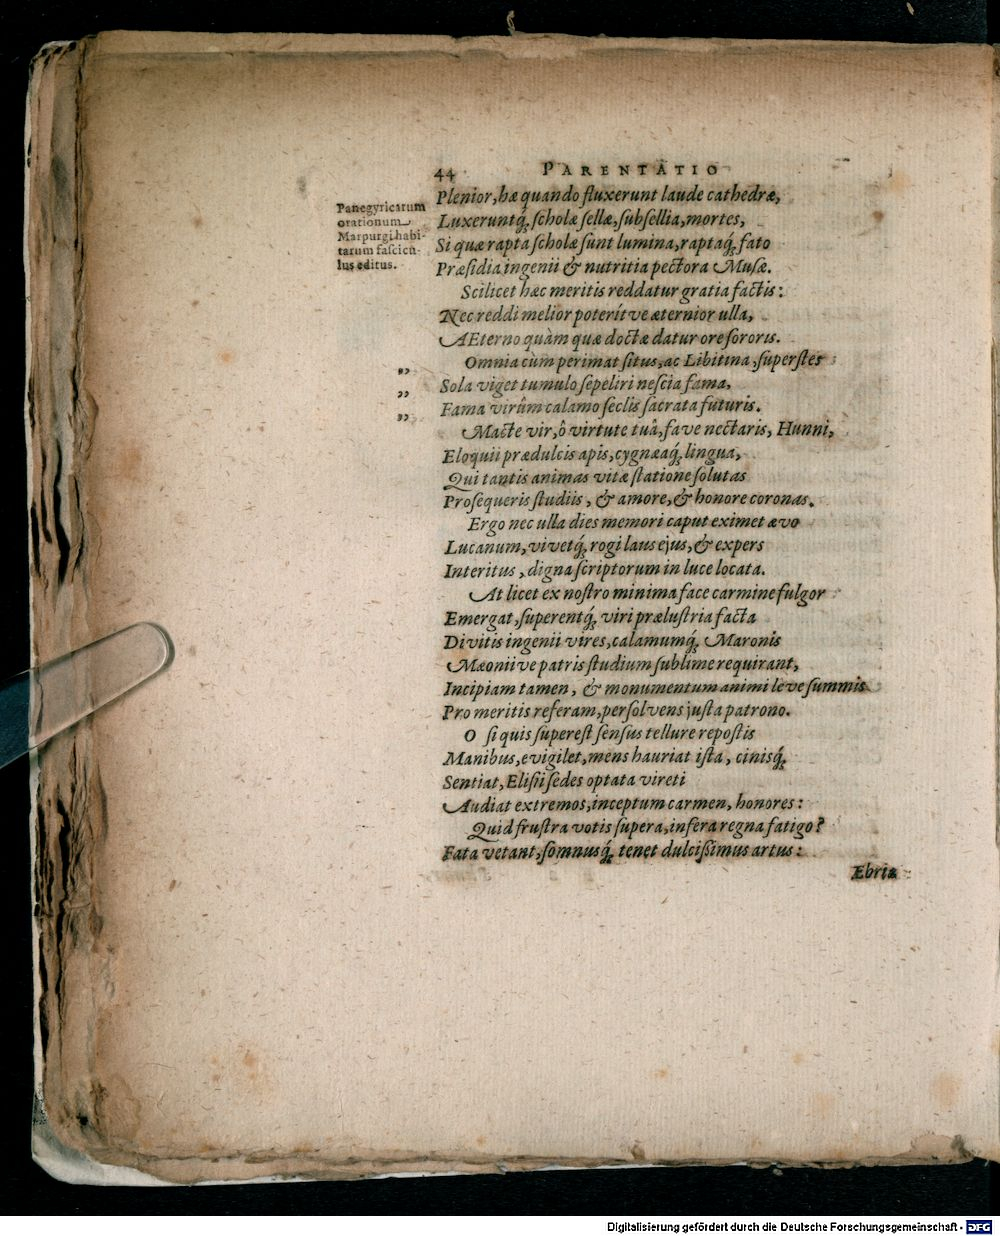 44 PARENTATIO
Panegyricarum
orationum
Marpurgi habi-
tarum fascicu-
lus editus.
Plenior, hæ quando fluxerunt laude cathedræ,
Luxeruntq́; scholæ sellæ, subsellia, mortes,
Si quæ rapta scholæ sunt lumina, raptaq́; fato
Præsidia ingenii & nutritia pectora Musæ.
Scilicet hæc meritis reddatur gratia factis:
Nec reddi melior poterítve æternior ulla,
AEterno quàm quæ doctæ datur ore sororis.
Omnia cùm perimat situs, ac Libitina, superstes
„ Sola viget tumulo sepeliri nescia fama,
„ Fama virûm calamo seclis sacrata futuris.
„ Macte vir, ô virtute tuâ, fave nectaris, Hunni,
Eloquii prædulcis apis, cygnæaq́; lingua,
Qui tantis animas vitæ statione solutas
Prosequeris studiis, & amore, & honore coronas.
Ergo nec ulla dies memori caput eximet ævo
Lucanum, vivetq́; rogi laus ejus, & expers
Interitus, digna scriptorum in luce locata.
At licet ex nostro minima face carmine fulgor
Emergat, superentq́; viri prælustria facta
Divitis ingenii vires, calamumq́; Maronis
Mæoniive patris studium sublime requirant,
Incipiam tamen, & monumentum animi leve summis
Pro meritis referam, persolvens justa patrono.
O si quis superest sensus tellure repostis
Manibus, evigilet, mens hauriat ista, cinisq́;
Sentiat, Elisii sedes optata vireti
Audiat extremos, inceptum carmen, honores:
Quid frustra votis supera, infera regna fatigo?
Fata vetant, somnusq́; tenet dulcissimus artus:
Ebriæ
Digitalisierung gefördert durch die Deutsche Forschungsgemeinschaft - DFG